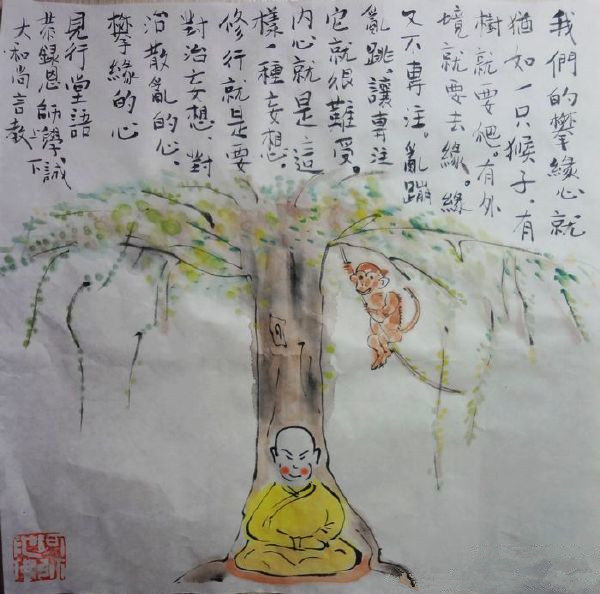 我們的攀緣心就
猶如一只猴子,有
樹就要爬。有外
境就要去緣。緣
又不專注。亂蹦
亂跳。讓專注
它就很難受。
內心就是這
樣一種妄想。
修行就是要
對治妄想、對
治散亂的心、
攀緣的心
見行堂語
恭錄恩師上學下誠
大和尚言教